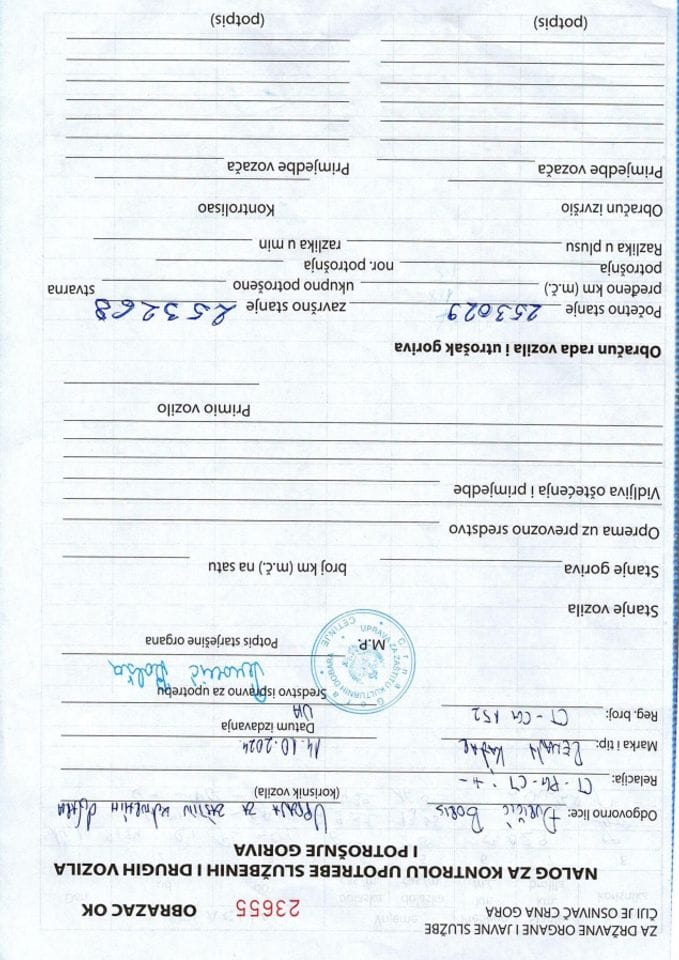 ZA DRŽAVNE ORGANE I JAVNE SLUŽBE
ČIJI JE OSNIVAČ CRNA GORA
23655 OBRAZAC OK
NALOG ZA KONTROLU UPOTREBE SLUŽBENIH I DRUGIH VOZILA
I POTROŠNJE GORIVA
Odgovorno lice: ĐURIČIĆ BORIS UPRAVA ZA ZAŠTITU KULTURNIH DOBARA
(korisnik vozila)
Relacija: CT - PG - CT
Marka i tip: RENAULT KADJAR 14.10.2024.
Datum izdavanja
Reg. broj: CT - CG 152 DA
Sredstvo ispravno za upotrebu
M.P. Potpis starješine organa
Crna Gora
UPRAVA ZA ZAŠTITU KULTURNIH DOBARA
CETINJE
Stanje vozila
Stanje goriva broj km (m.č.) na satu
Oprema uz prevozno sredstvo
Vidljiva oštećenja i primjedbe
Primio vozilo
Obračun rada vozila i utrošak goriva
Početno stanje 253029 završno stanje 253268
pređeno km (m.č.) ukupno potrošeno stvarna
potrošnja nor. potrošnja
Razlika u plusu razlika u min
Obračun izvršio Kontrolisao
Primjedbe vozača Primjedbe vozača
(potpis) (potpis)